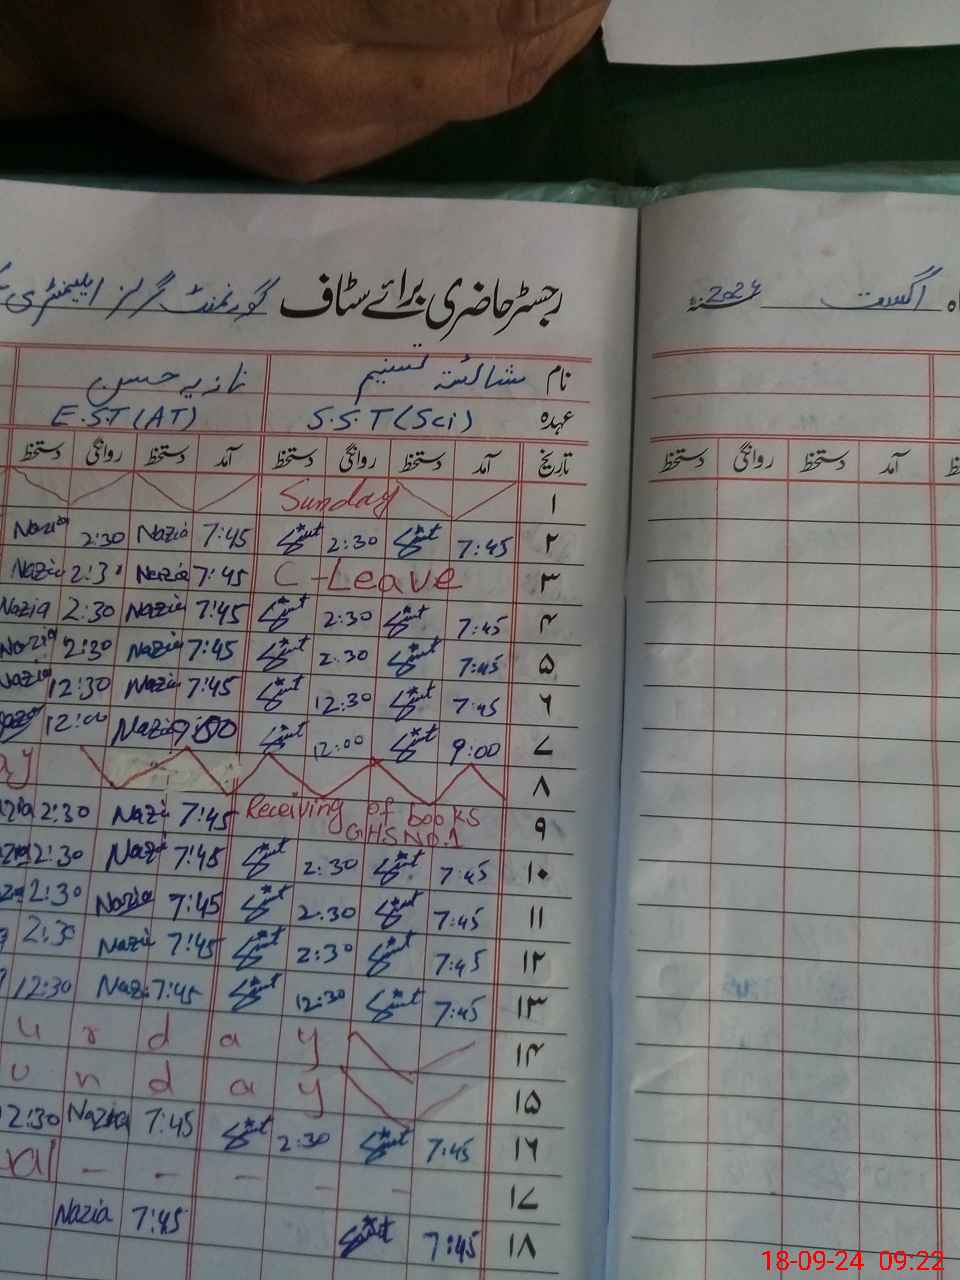 رجسٹر حاضری برائے سٹاف گورنمنٹ گرلز ایلیمنٹری
اگست 2024
نام شائستہ تسنیم نازیہ حسن
عہدہ S.S.T (Sci) E.S.T (AT)
تاریخ آمد دستخط روانگی دستخط آمد دستخط روانگی دستخط
آمد دستخط روانگی دستخط
۱ Sunday
۲ 7:45 2:30 7:45 Nazia 2:30 Nazia
۳ C-Leave 7:45 Nazia 2:30 Nazia
۴ 7:45 2:30 7:45 Nazia 2:30 Nazia
۵ 7:45 2:30 7:45 Nazia 2:30 Nazia
۶ 7:45 12:30 7:45 Nazia 12:30 Nazia
۷ 9:00 12:00 9:00 Nazia 12:00
۸
۹ Receiving of books GHS No.1 7:45 Nazi 2:30
۱۰ 7:45 2:30 7:45 Nazi 2:30
۱۱ 7:45 2:30 7:45 Nazia 2:30
۱۲ 7:45 2:30 7:45 Nazi 2:30
۱۳ 7:45 12:30 7:45 Nazi 12:30
۱۴ u r d a y
۱۵ u n d a y
۱۶ 7:45 2:30 7:45 Nazia 2:30
۱۷ - - - - -
۱۸ 7:45 7:45 Nazia
18-09-24 09:22